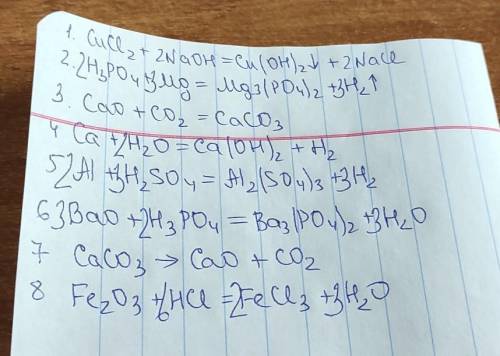 1. CuCl2 + 2NaOH = Cu(OH)2↓ + 2NaCl
2. 2H3PO4 + 3Mg = Mg3(PO4)2 + 3H2↑
3. CaO + CO2 = CaCO3
4 Ca + 2H2O = Ca(OH)2 + H2
5 2Al + 3H2SO4 = Al2(SO4)3 + 3H2
6 3BaO + 2H3PO4 = Ba3(PO4)2 + 3H2O
7 CaCO3 → CaO + CO2
8 Fe2O3 + 6HCl = 2FeCl3 + 3H2O